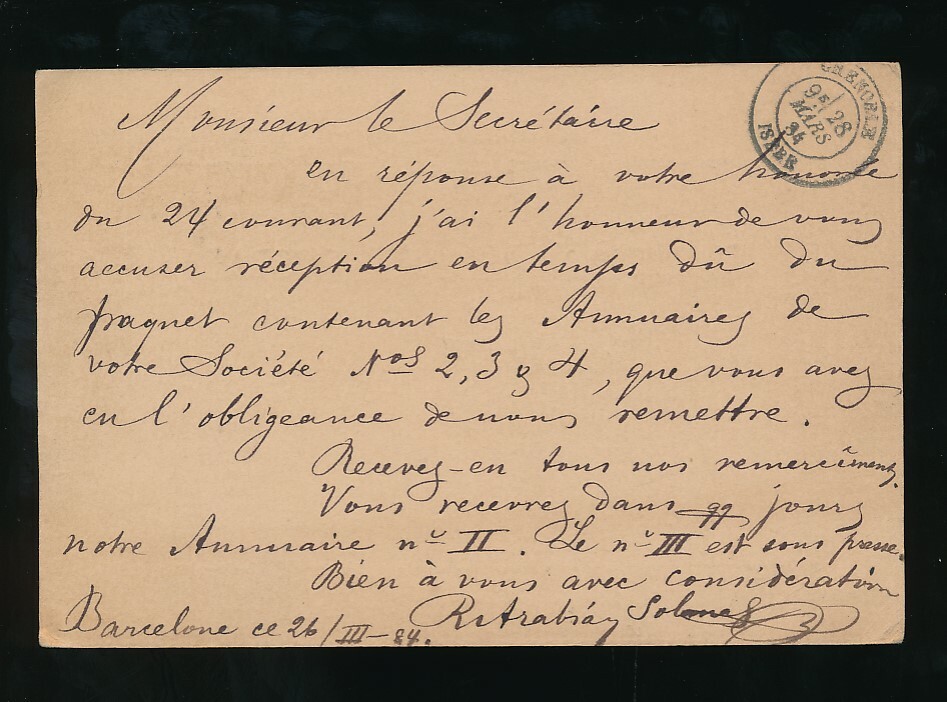 Monsieur le Secrétaire
GRENOBLE
9E/28
MARS
84
ISERE
en réponse à votre honorée
du 24 courant, j'ai l'honneur de vous
accuser réception en temps dû du
paquet contenant les Annuaires de
votre Société Nos 2, 3 y 4, que vous avez
eu l'obligeance de nous remettre.
Recevez-en tous nos remercîments.
Vous recevrez dans qq jours
notre Annuaire nº II. Le nº III est sous presse.
Bien à vous avec considération
Barcelone ce 26/III-84.